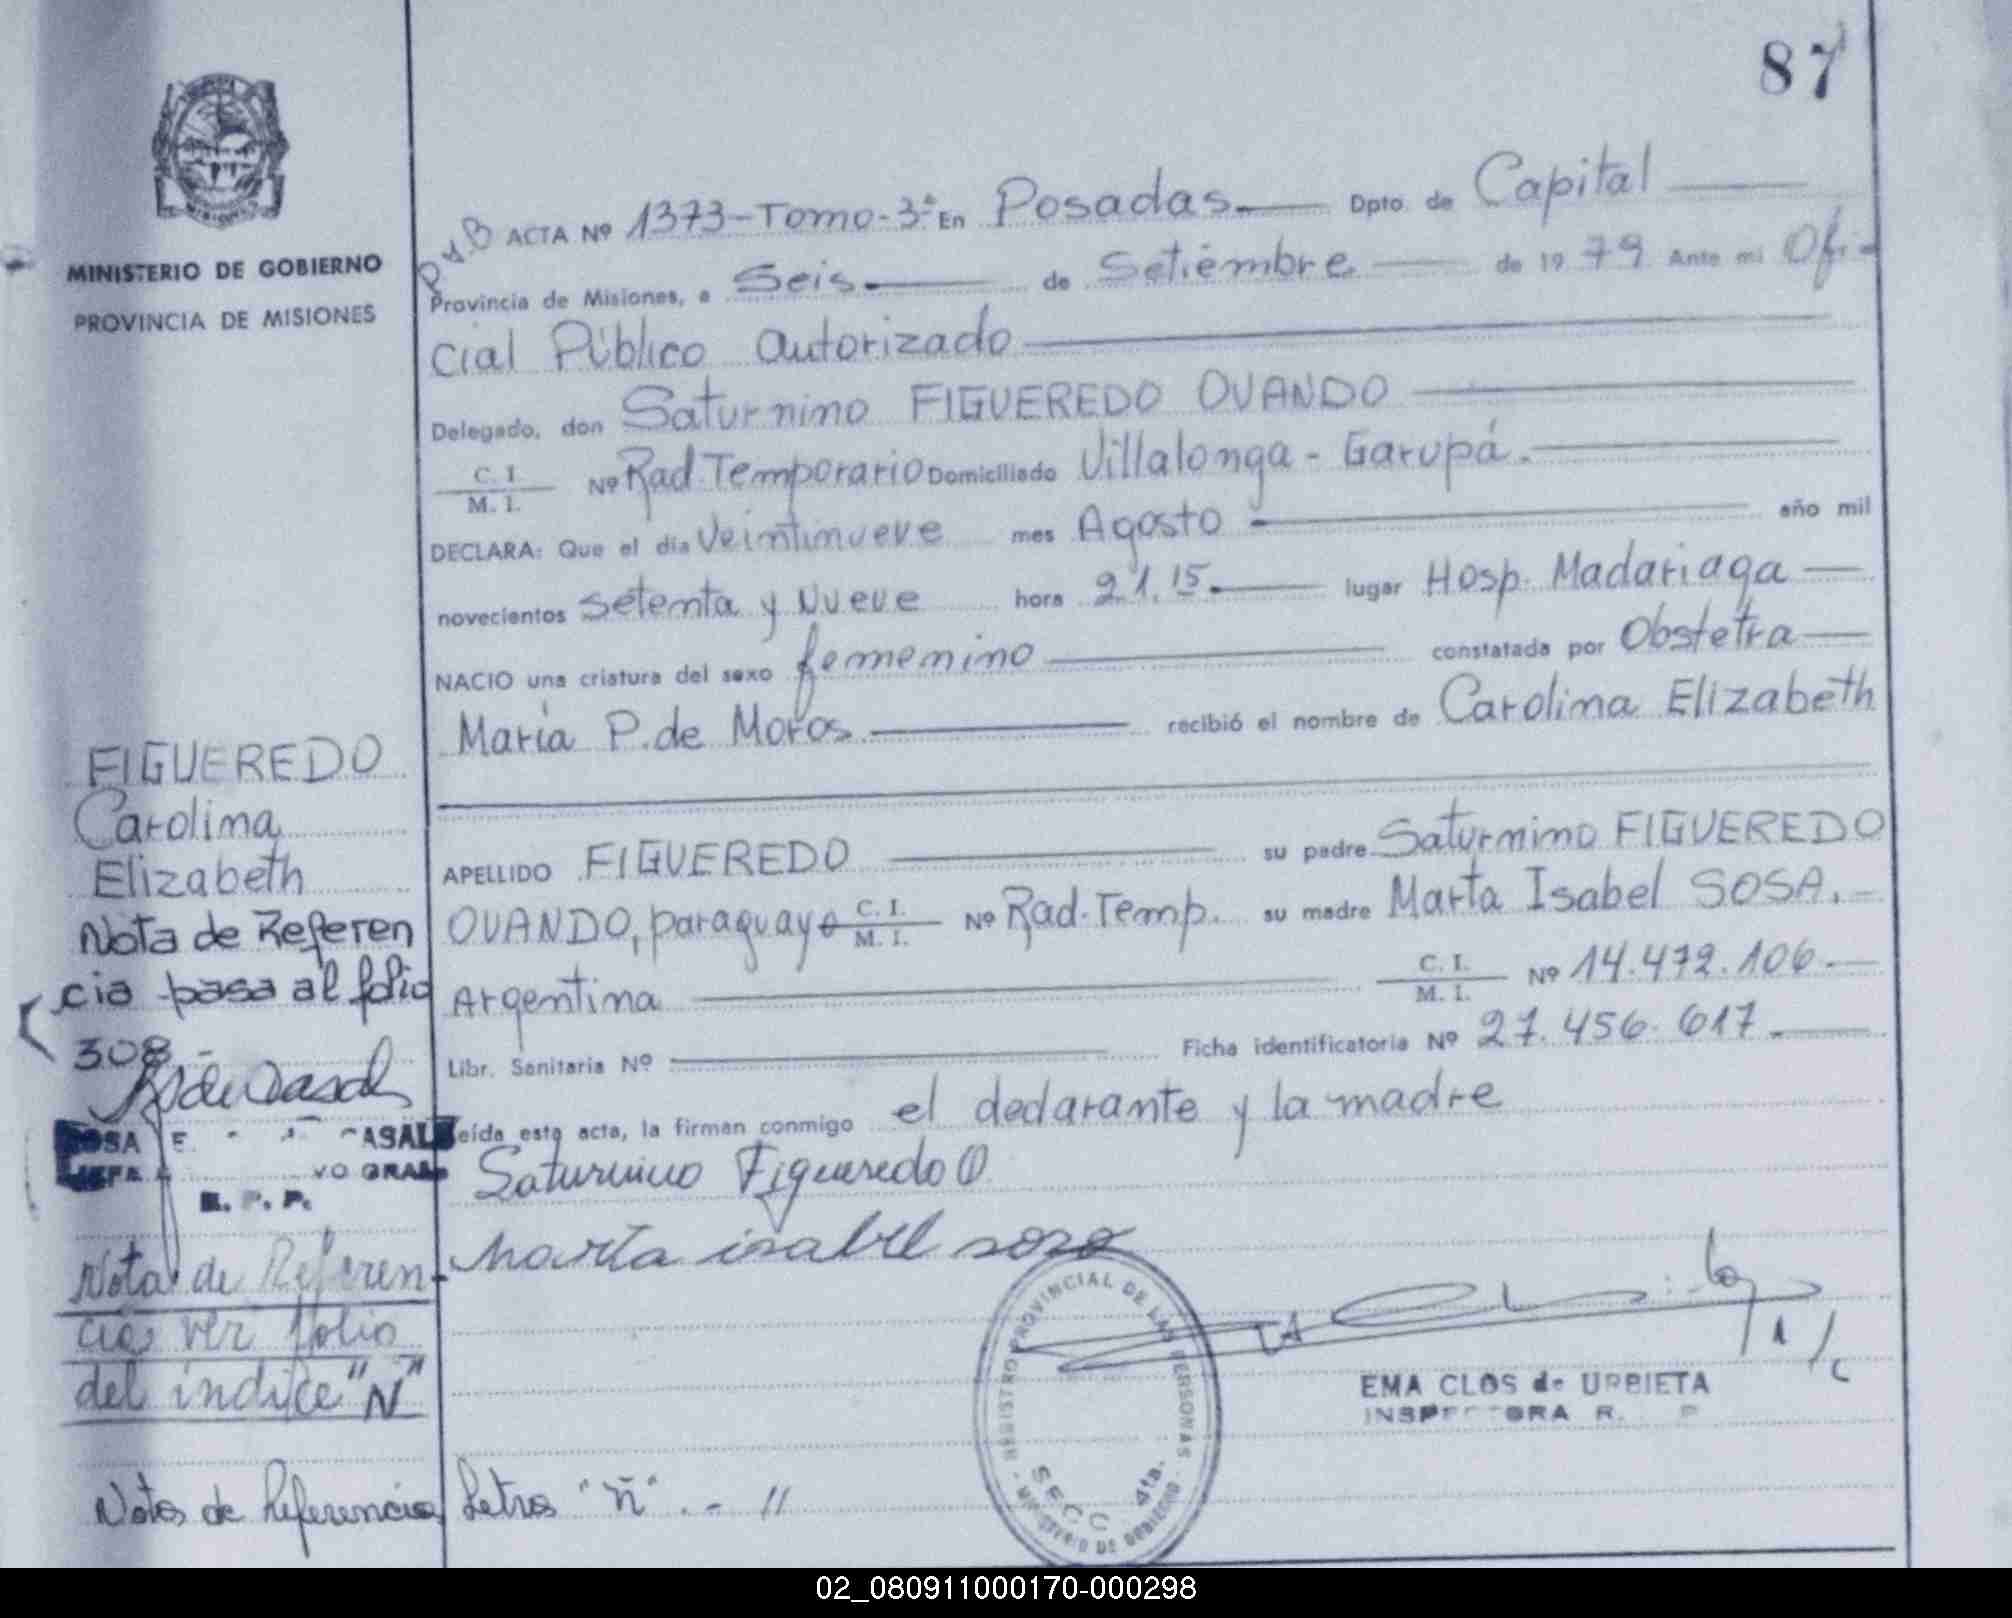 87
MINISTERIO DE GOBIERNO
PROVINCIA DE MISIONES
ACTA Nº 1373-Tomo-3ª En Posadas Dpto. de Capital
Provincia de Misiones, a Seis de Setiembre de 1979 Ante mi Ofi-
cial Público autorizado
Delegado, don Saturnino FIGUEREDO OVANDO
C. I.
M. I. Nº Rad. Temporario Domiciliado Villalonga - Garupá.
DECLARA: Que el día Veintinueve mes Agosto año mil
novecientos Setenta y Nueve hora 21.15 lugar Hosp. Madariaga
NACIO una criatura del sexo femenino constatada por Obstetra
María P. de Moros recibió el nombre de Carolina Elizabeth
FIGUEREDO
Carolina
Elizabeth
APELLIDO FIGUEREDO su padre Saturnino FIGUEREDO
OVANDO, paraguayo C. I.
M. I. Nº Rad. Temp. su madre Marta Isabel SOSA.
Argentina C. I.
M. I. Nº 14.472.106.
Libr. Sanitaria Nº Ficha identificatoria Nº 27.456.617.
Leída esta acta, la firman conmigo el declarante y la madre
Saturnino Figueredo O
Marta isabel sosa
Nota de Referen
cia pasa al folio
308.-
R. P. P.
Nota de Referen-
cia ver folio
del indice "N"
Notas de Referencias Letras "ñ" . - //
REGISTRO PROVINCIAL DE LAS PERSONAS
SECC 4ta.
MINISTERIO DE GOBIERNO
EMA CLOS de URBIETA
INSPECTORA R. P
02_080911000170-000298